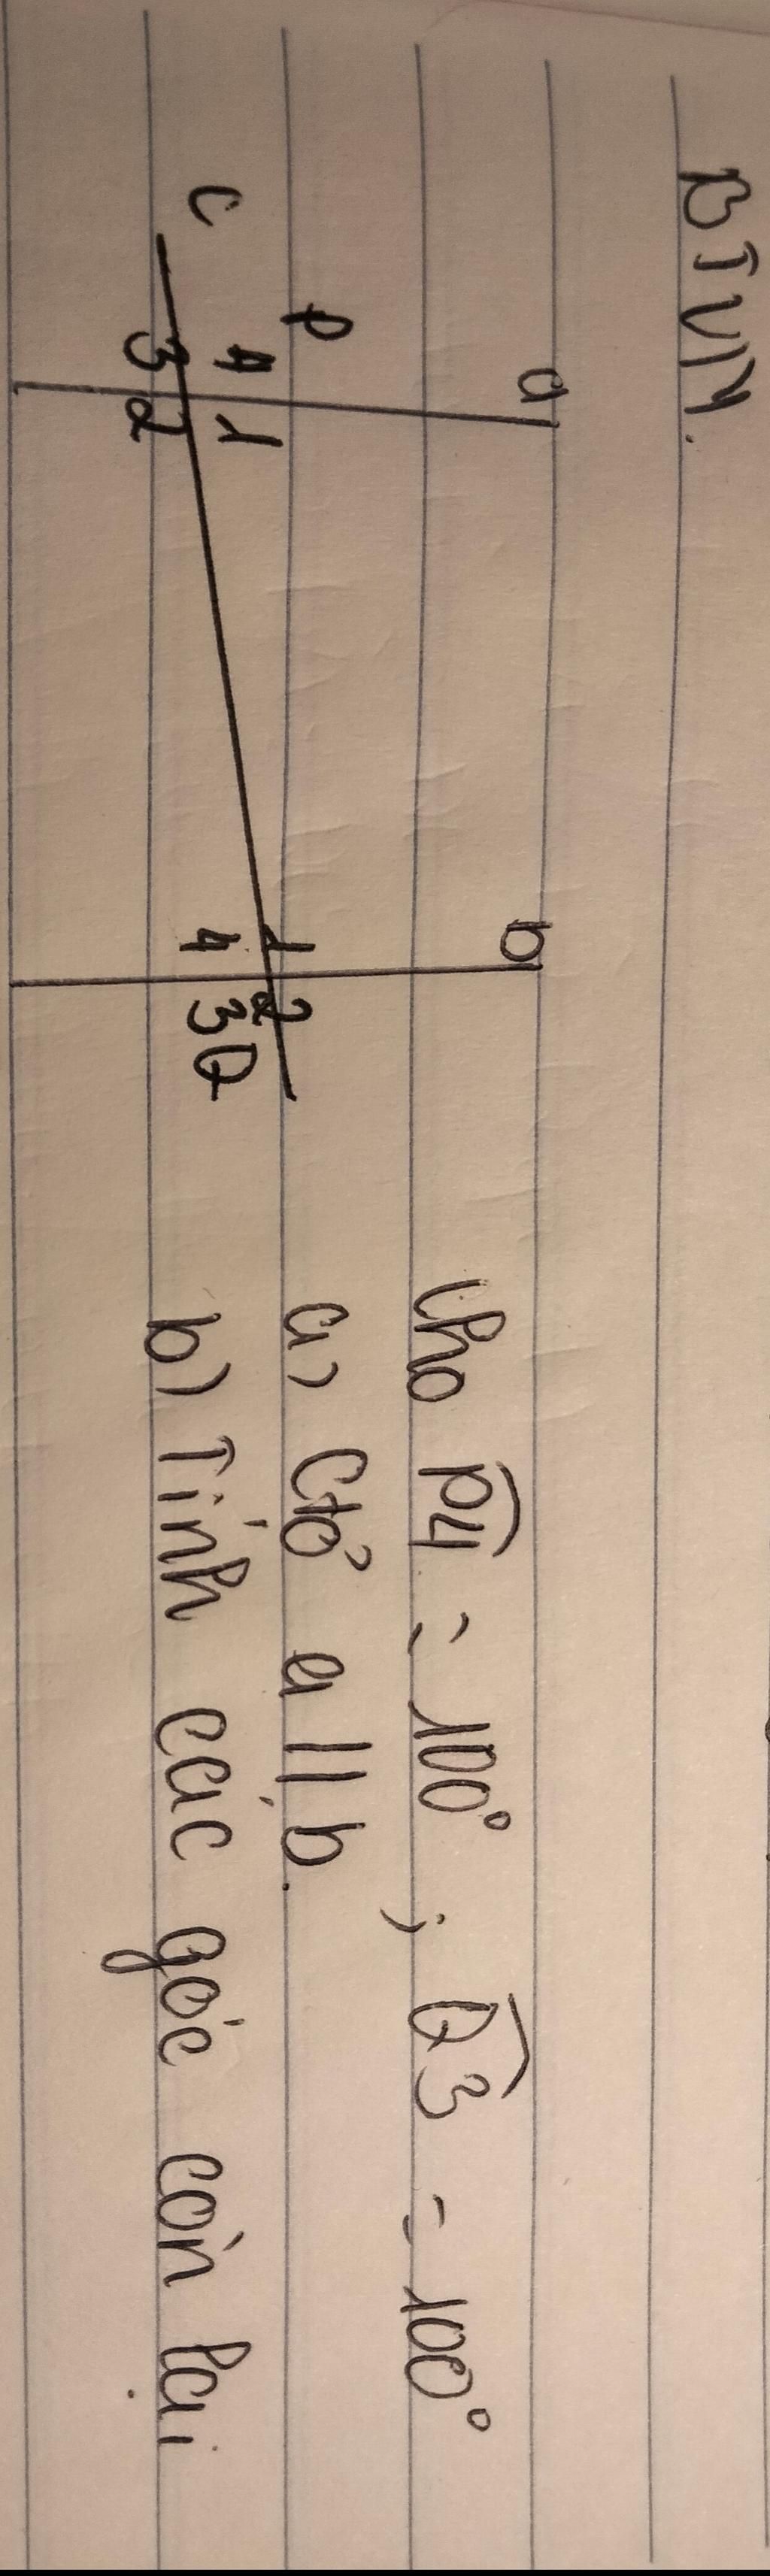 BTVN.
a
b
Cho P4 = 100° ; Q3 = 100°
P
a) Ctỏ a || b.
c
4 1
1 2
3 2
4 3 Q
b) Tính các góc còn lại